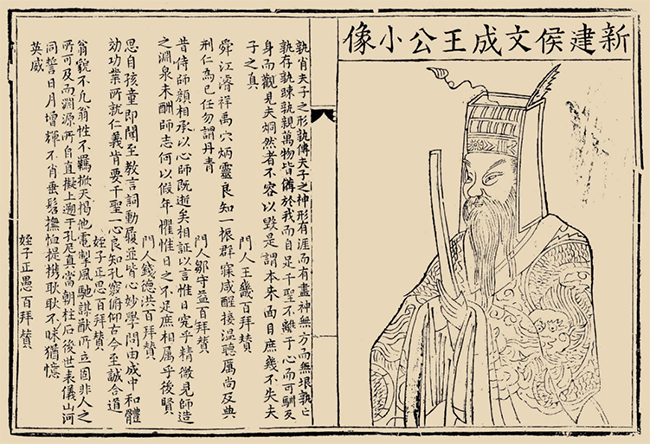 新建侯文成王公小像
孰肖夫子之形孰傳夫子之神形有涯而有盡神無方而無垠孰亡
孰存孰疎孰親萬物皆備於我而自足千聖不離于心而可馴反
身而觀見夫炯然者不容以毀是謂本来面目庶幾不失夫
子之真
門人王畿百拜贊
舜江濬祥禹穴炳靈良知一振群寐咸醒接溫聽厲尚及典
刑仁為己任勿謂丹青
門人鄒守益百拜贊
昔侍師顏相承以心師既逝矣相証以言惟日究乎精微見師造
之淵泉未酬師志何以假年懼惟日之不足庶相屬乎後賢
門人錢德洪百拜贊
思自孩童即聞至教言詞動履並皆心妙學問由成中和體
效功業所就仁義肯要千聖一心良知孔竅俯仰古今至誠合道
姪子正愚百拜贊
翁貌不凡翁性不羈掀天揭地電掣風馳謀猷所立固非人之
所可及而淵源所自直擬上遡乎孔尼真當朝柱石後世表儀山河
同誓日月增輝不肖垂髫撫恤提携耿耿不昧猶憶
英威
姪子正愚百拜贊